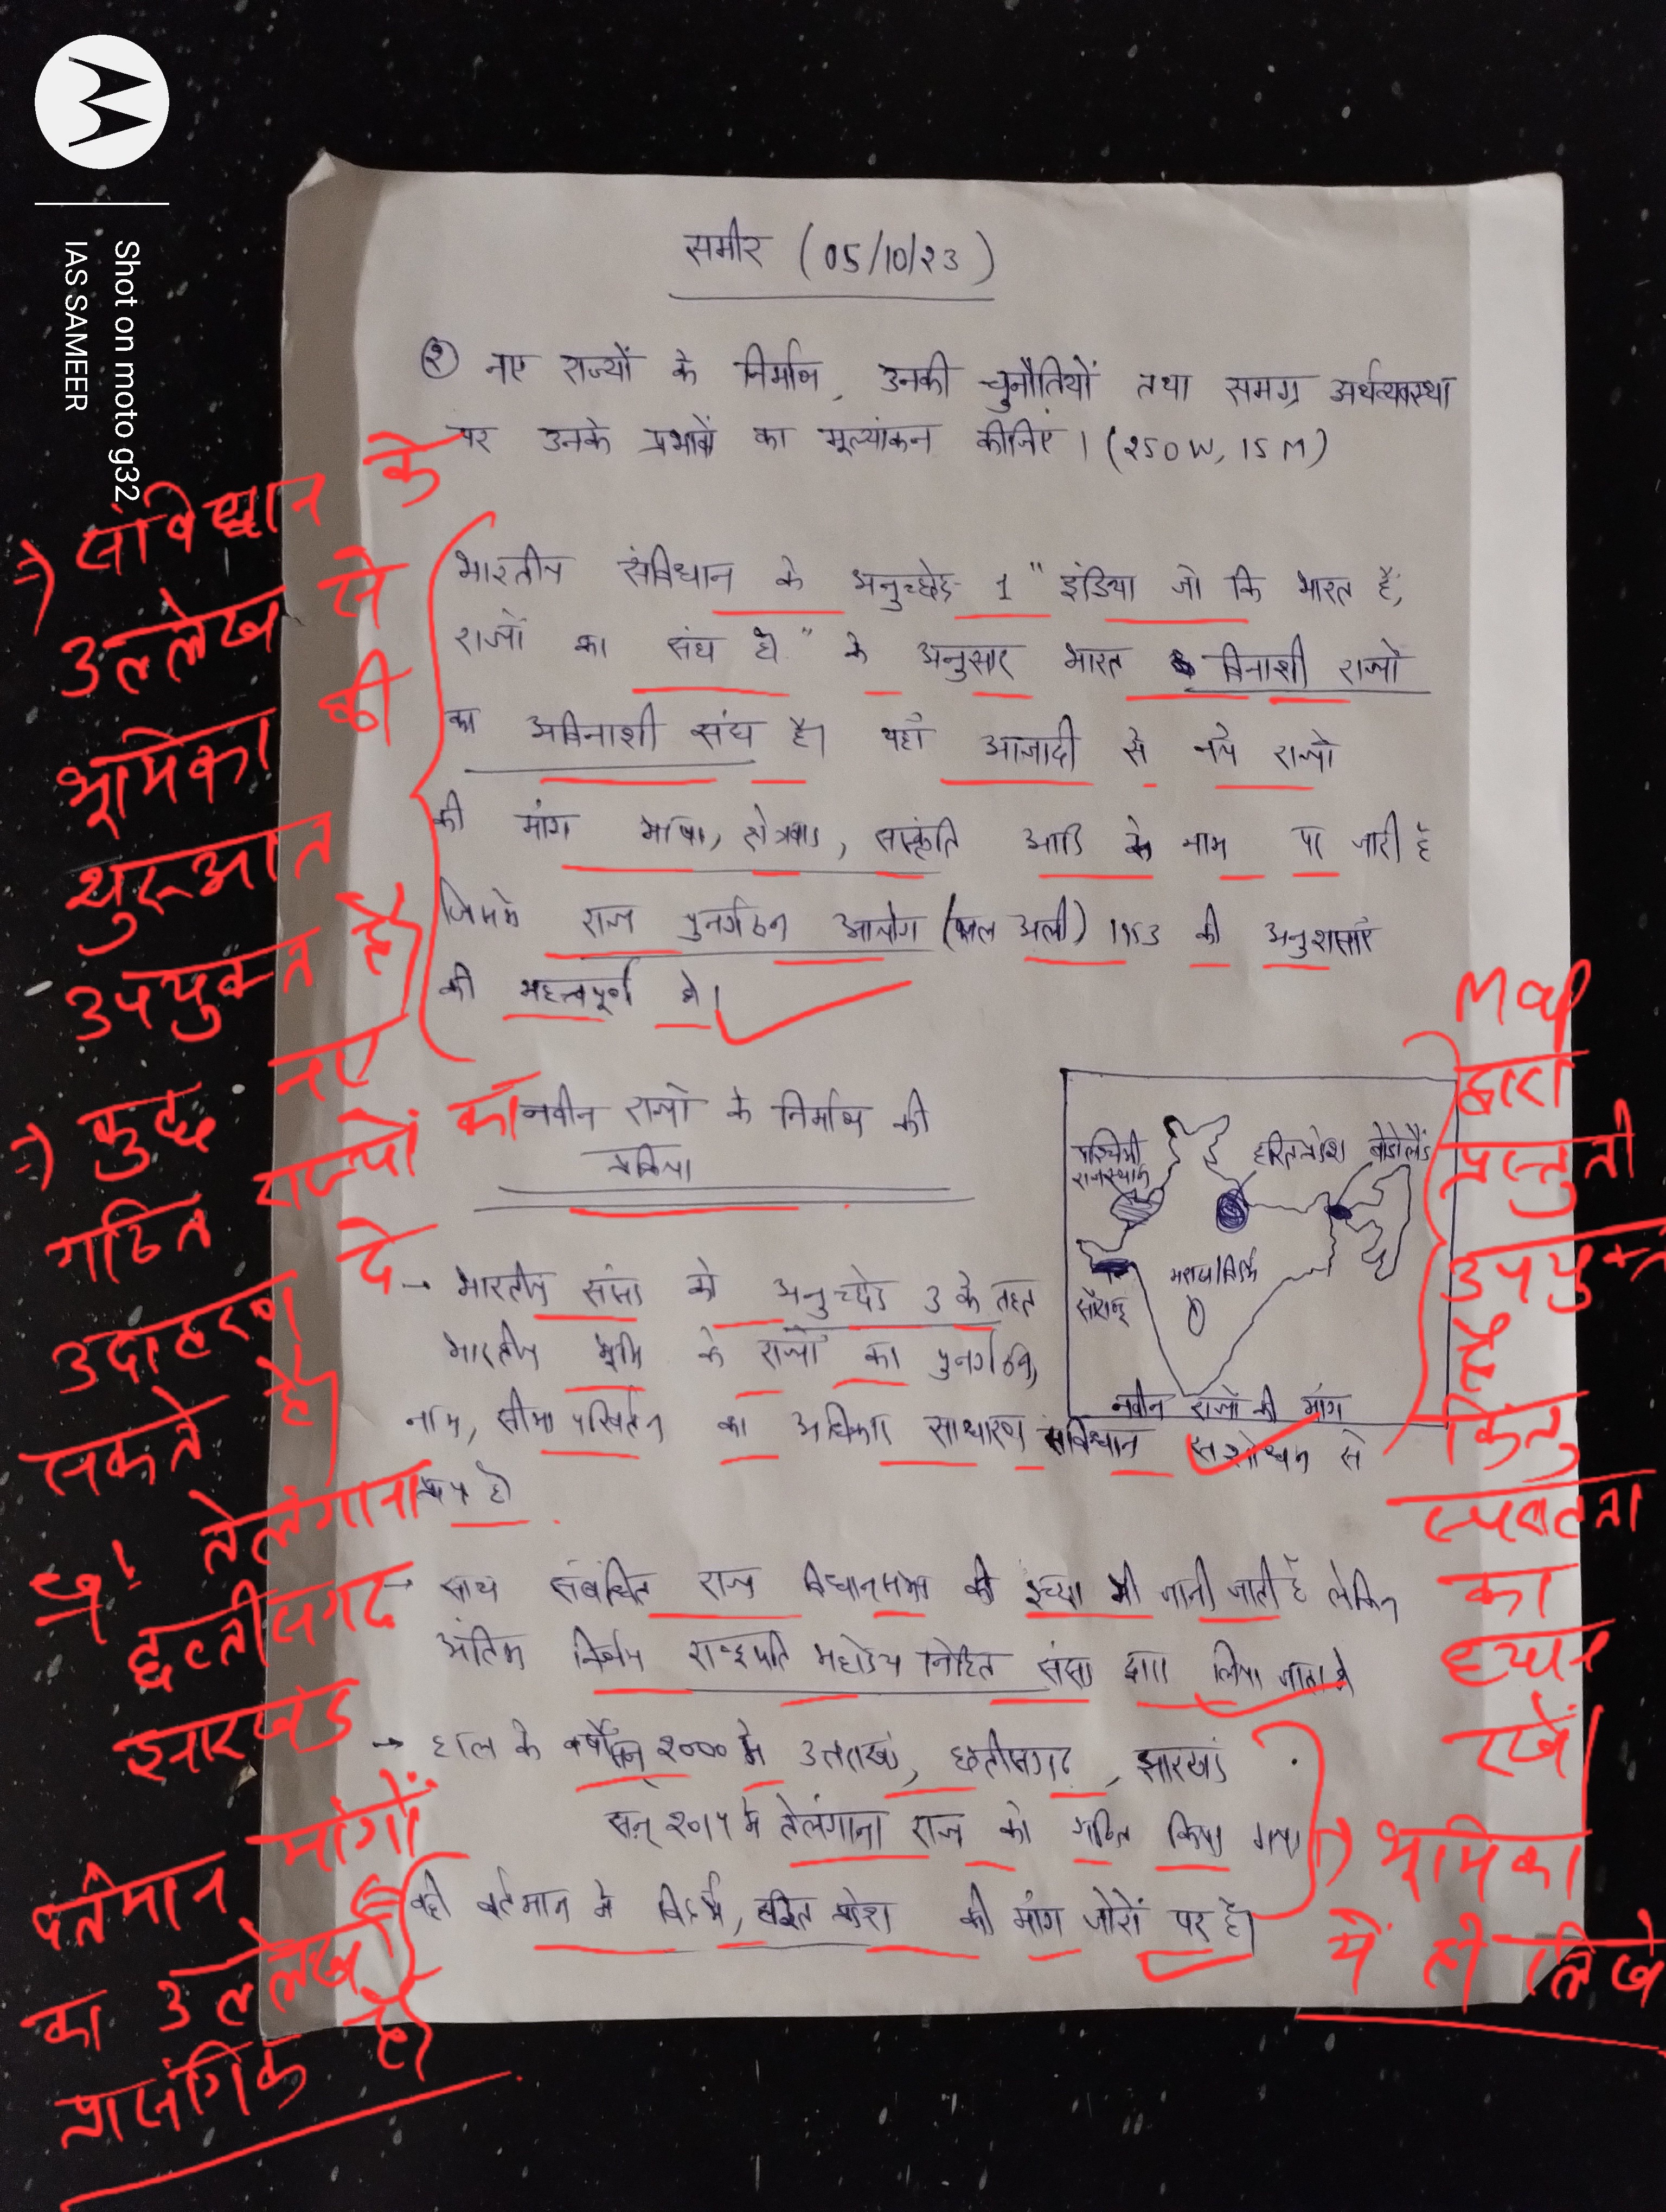 Shot on moto g32
IAS SAMEER
समीर (05/10/23)
② नए राज्यों के निर्माण, उनकी चुनौतियों तथा समग्र अर्थव्यवस्था
पर उनके प्रभावों का मूल्यांकन कीजिए। (250 W, 15 M)
भारतीय संविधान के अनुच्छेद 1 " इंडिया जो कि भारत है,
राज्यों का संघ है " के अनुसार भारत विनाशी राज्यों
का अविनाशी संघ है। यहाँ आजादी से नये राज्यों
की मांग भाषा, क्षेत्रवाद, संस्कृति आदि के नाम पर जारी है
जिसमें राज्य पुनर्गठन आयोग (फजल अली) 1953 की
की महत्वपूर्ण है।
नवीन राज्यों के निर्माण की
प्रक्रिया
पश्चिमी
राजस्थान
हरितप्रदेश
बोडोलैंड
सौराष्ट्र
नवीन राज्यों की मांग
→ भारतीय संसद को अनुच्छेद 3 के तहत
भारतीय भूमि के राज्यों का पुनर्गठन,
नाम, सीमा परिवर्तन का अधिकार साधारण संविधान संशोधन से
है।
→ साथ संबंधित राज्य विधानसभा की इच्छा भी जानी जाती है लेकिन
अंतिम निर्णय राष्ट्रपति महोदय निहित संसद द्वारा लिया जाता है
→ हाल के वर्षों सन् 2000 में उत्तराखंड, छत्तीसगढ, झारखंड
सन् 2014 में तेलंगाना राज्य को गठित किया गया
वही वर्तमान में विदर्भ, हरित प्रदेश की मांग जोरों पर है।
⇒ संविधान के
उल्लेख से
भूमिका की
शुरूआत
उपयुक्त है।
⇒ कुछ नए
गठित राज्यों का
उदाहरण दे
सकते है।
तेलंगाना
छत्तीसगढ
झारखंड
वर्तमान मांगों
का उल्लेख
प्रासंगिक है।
Map
द्वारा
प्रस्तुती
उपयुक्त
है
किन्तु
स्पष्टता
का
ध्यान
रखें।
⇒ भूमिका
में ही लिखे